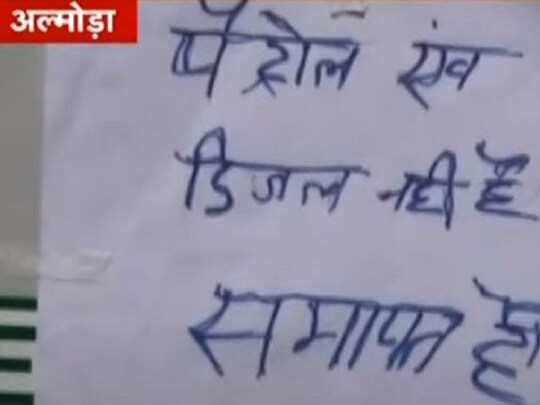 अल्मोड़ा
पेट्रोल एंव
डिजल नही है
समाप्त है